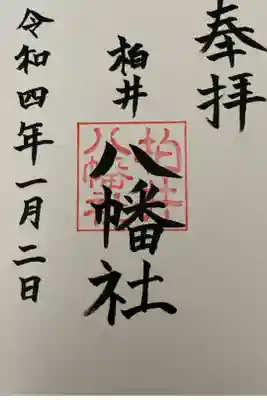 奉拝
柏井
八幡社
令和四年一月二日
柏井
八幡社